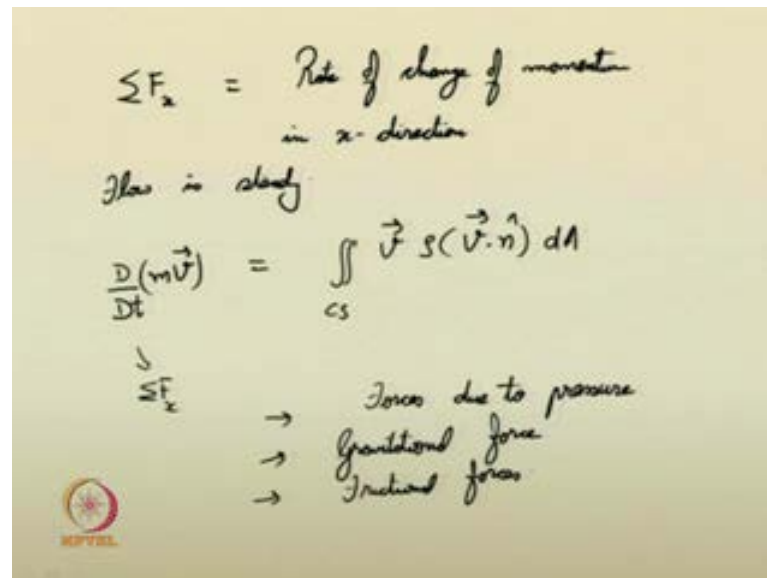 ΣFₓ = Rate of change of momentum
in x-direction
Flow is steady
D/Dt (m\vec{v}) = ∬_{CS} \vec{v} ρ(\vec{v}·\hat{n}) dA
↘
ΣFₓ
→ Forces due to pressure
→ Gravitational force
→ Frictional forces
NPTEL